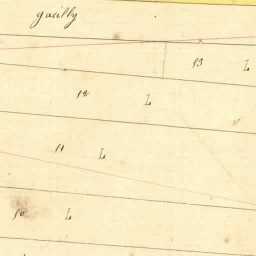 gailly
13 L
12 L
11 L
10 L